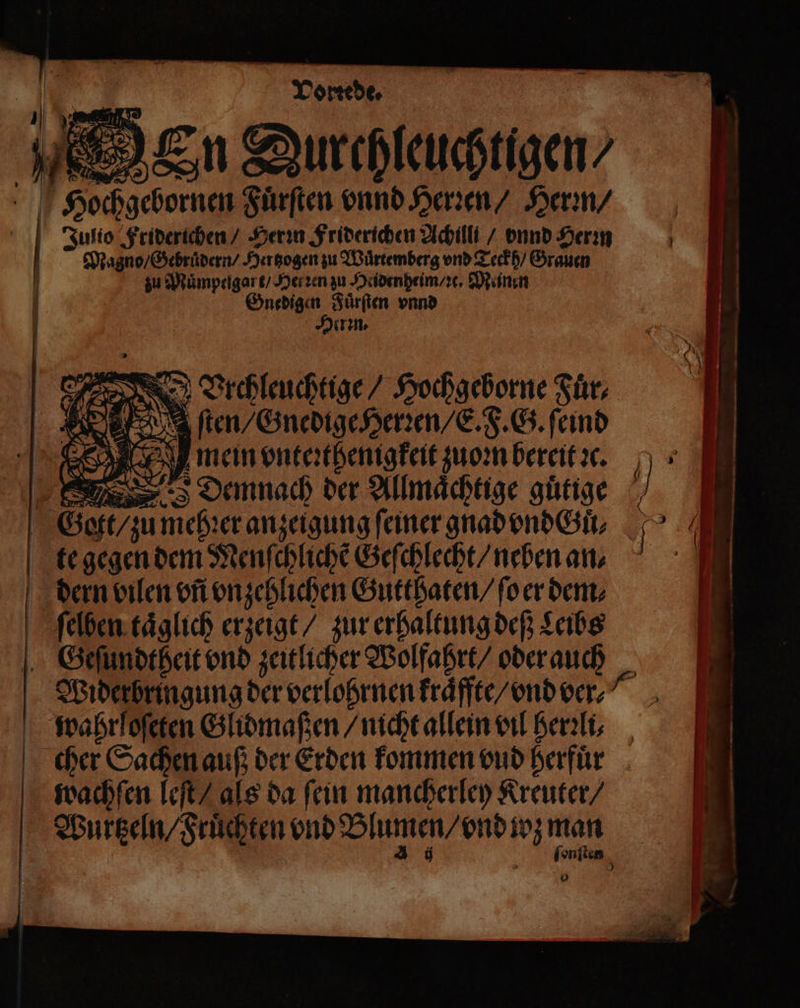 Vorrede.
DEn Durchleuchtigen/
Hochgebornen Fuͤrſten vnnd Herꝛen/ Herꝛn/
Julio Friderichen/ Herꝛn Friderichen Achilli / vnnd Herꝛn
Magno/Gebruͤdern/ Hertzogen zu Wuͤrtemberg vnd Teckh/ Grauen
zu Muͤmpelgart/ Herꝛen zu Heidenheim/ꝛc. Meinen
Gnedigen Fuͤrſten vnnd
Herꝛn.
DVrchleuchtige / Hochgeborne Fuͤr⸗
ſten/Gnedige Herꝛen/E.F.G. ſeind
mein vnteꝛthenigkeit zuoꝛn bereit ꝛc.
Demnach der Allmaͤchtige guͤtige
Gott/zu mehꝛer anzeigung ſeiner gnad vnd Guͤ⸗
te gegen dem Menſchlichẽ Geſchlecht/neben an⸗
dern vilen vñ vnzehlichen Gutthaten/ ſo er dem⸗
ſelben taͤglich erzeigt / zur erhaltung deß Leibs
Geſundtheit vnd zeitlicher Wolfahrt/ oder auch
Widerbringung der verlohrnen kraͤffte/vnd ver⸗
wahrloſeten Glidmaßen /nicht allein vil herꝛli⸗
cher Sachen auß der Erden kommen vud herfuͤr
wachſen leſt/ als da ſein mancherley Kreuter/
Wurtzeln/Fruͤchten vnd Blumen/vnd wz man
A ij ſonſten